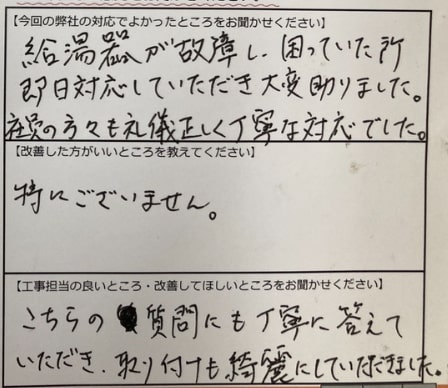 【今回の弊社の対応でよかったところをお聞かせください】
給湯器が故障し、困っていた所
即日対応していただき大変助りました。
社員の方々も礼儀正しく丁寧な対応でした。
【改善した方がいいところを教えてください】
特にございません。
【工事担当の良いところ・改善してほしいところをお聞かせください】
こちらの質問にも丁寧に答えて
いただき、取り付けも綺麗にしていただきました。